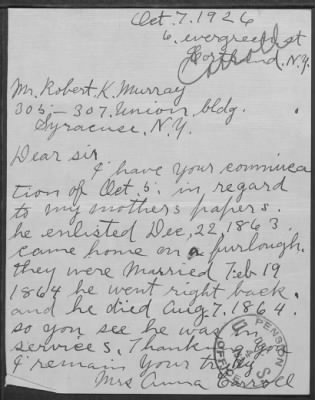 Oct. 7. 1926
6. evergreen st
Cortland, N.Y.
Carroll
Mr. Robert. K. Murray
305 - 307. Union bldg.
Syracuse. N.Y.
Dear sir
I have your comminca
tion of Oct. 5. in regard
to my mothers papers.
he enlisted Dec, 22, 1863.
came home on a furlough.
they were Married Feb 19
1864 he went right back.
and he died Aug. 7. 1864.
so you see he was in
services. Thanking you
I remain Your truly
Mrs Anna Carroll
PENSION
OFFICE